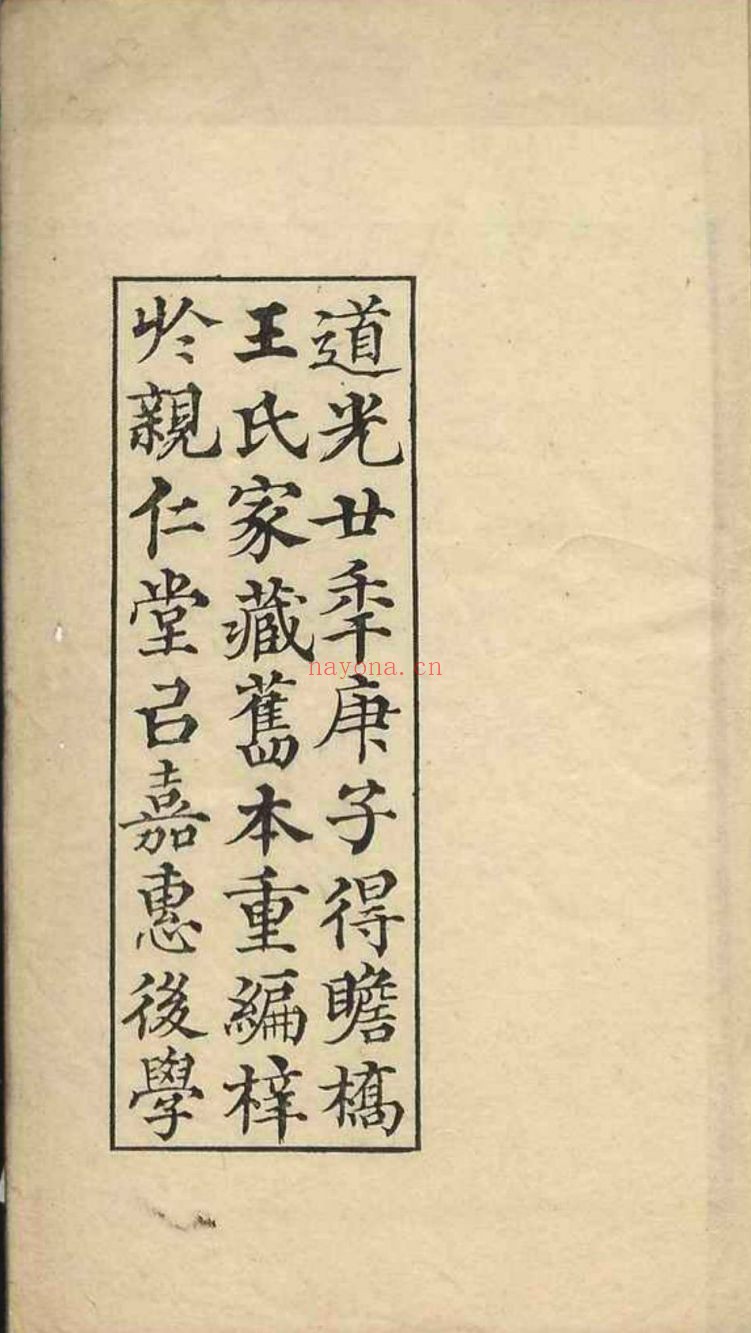 道光廿秊庚子得瞻橋
王氏家藏舊本重編梓
於親仁堂㠯嘉惠後學
nayona.cn